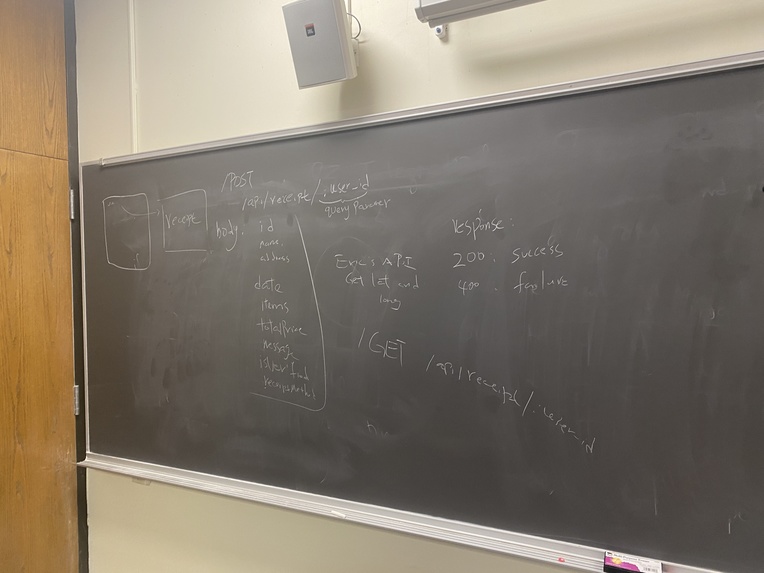 /POST
/api/receipt/:user-id
query Parameter
receipt
body:
id
name.
address
date
items
totalPrice
message
Eric's API
Get lat and
long
response:
200. success
400. failure
/GET
/api/receipt/:user-id